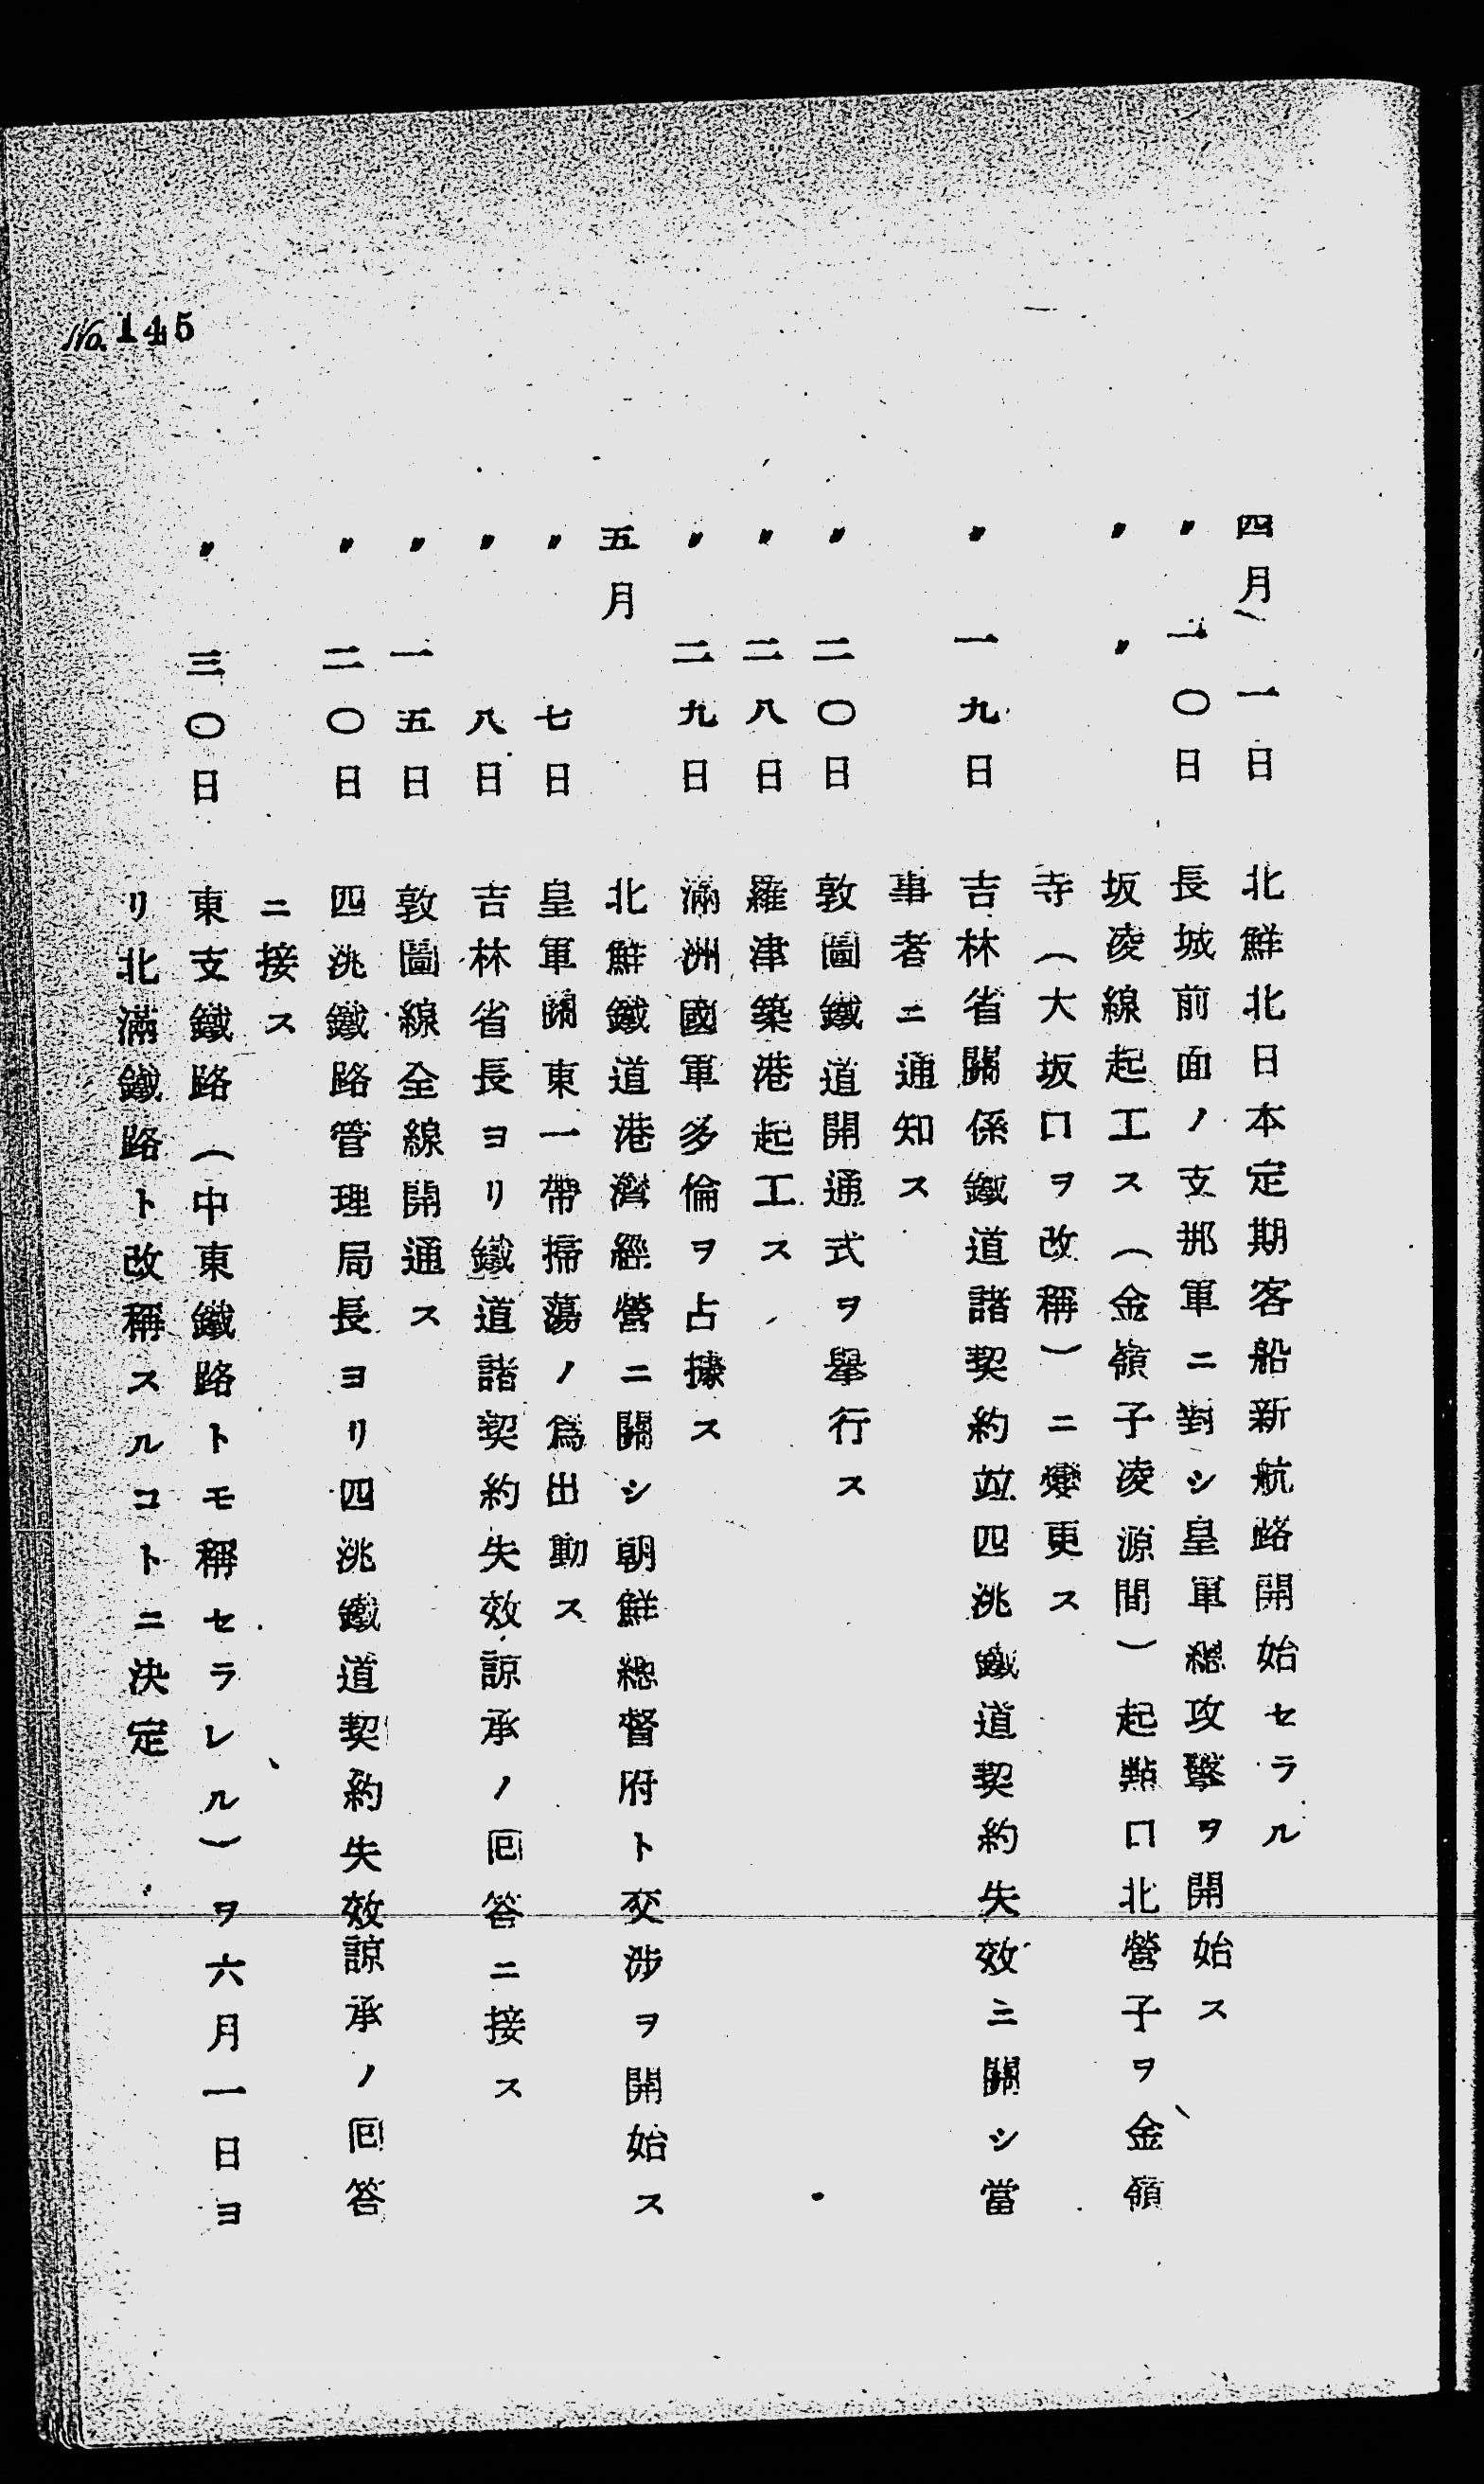 四月　一日　北鮮北日本定期客船新航路開始セラル
〃　一〇日　長城前面ノ支那軍ニ對シ皇軍總攻擊ヲ開始ス
〃　〃　坂凌線起工ス（金嶺子凌源間）起點口北營子ヲ金嶺
寺（大坂口ヲ改稱）ニ變更ス
〃　一九日　吉林省關係鐵道諸契約竝四洮鐵道契約失效ニ關シ當
事者ニ通知ス
〃　二〇日　敦圖鐵道開通式ヲ擧行ス
〃　二八日　羅津築港起工ス
〃　二九日　滿洲國軍多倫ヲ占據ス
五月　北鮮鐵道港灣經營ニ關シ朝鮮總督府ト交涉ヲ開始ス
〃　七日　皇軍關東一帶掃蕩ノ爲出動ス
〃　八日　吉林省長ヨリ鐵道諸契約失效諒承ノ囘答ニ接ス
〃　一五日　敦圖線全線開通ス
〃　二〇日　四洮鐵路管理局長ヨリ四洮鐵道契約失效諒承ノ囘答
ニ接ス
〃　三〇日　東支鐵路（中東鐵路トモ稱セラレル）ヲ六月一日ヨ
リ北滿鐵路ト改稱スルコトニ決定
No. 145